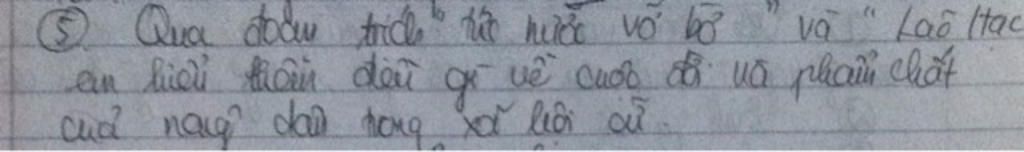 ⑤ Qua đoạn trích "tức nước vỡ bờ" và "Lão Hạc
em hiểu thêm điều gì về cuộc đời và phẩm chất
của người dân trong xã hội cũ.